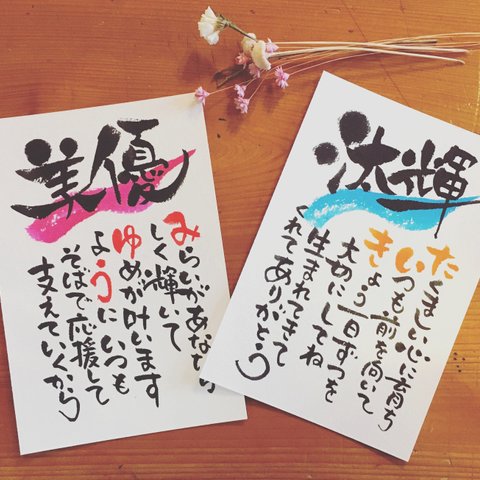 美優
みらいがあなたら
しく輝いて
ゆめが叶います
ようにいつも
そばで応援して
支えていくから
汰輝
たくましい心に育ち
いつも前を向いて
きょう一日ずつを
大切にしてね
生まれてきて
くれてありがとう